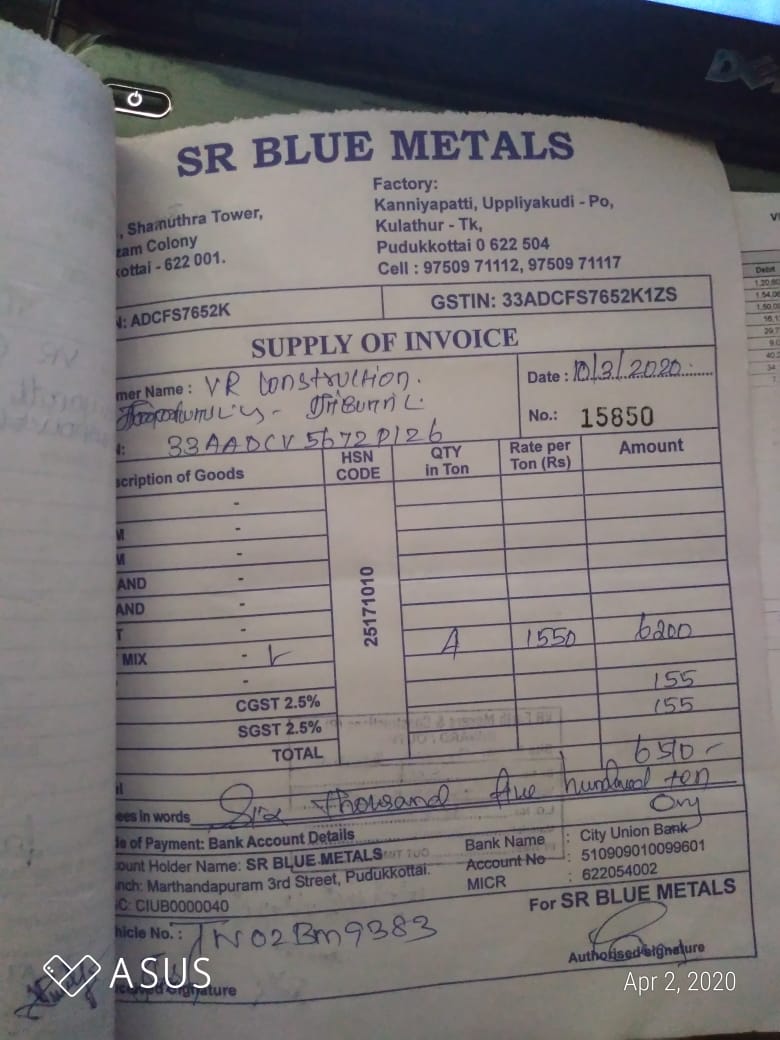 SR BLUE METALS
Factory:
Kanniyapatti, Uppliyakudi - Po,
Kulathur - Tk,
Pudukkottai 0 622 504
Cell : 97509 71112, 97509 71117
, Shamuthra Tower,
zam Colony
kottai - 622 001.
N: ADCFS7652K
GSTIN: 33ADCFS7652K1ZS
SUPPLY OF INVOICE
mer Name : VR Construction.
Date : 10/3/2020
No.: 15850
N: 33AADCV5672P1Z6
scription of Goods
HSN CODE
QTY in Ton
Rate per Ton (Rs)
Amount
-
M -
M -
AND -
AND -
T -
25171010
MIX - 4 1550 6200
- 155
CGST 2.5% 155
SGST 2.5%
TOTAL 6510 -
ees in words Six thousand five hundred ten Ony
de of Payment: Bank Account Details
ount Holder Name: SR BLUE METALS
nch: Marthandapuram 3rd Street, Pudukkottai.
C: CIUB0000040
Bank Name : City Union Bank
Account No : 510909010099601
MICR : 622054002
hicle No. : TN02BM9383
For SR BLUE METALS
Authorised signature
Signature
ASUS
Apr 2, 2020
Debit